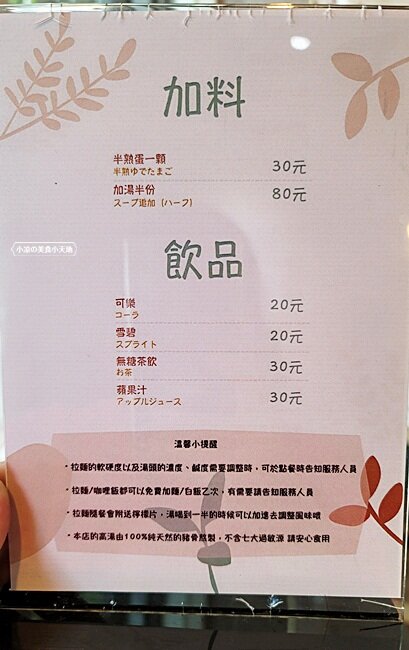 加料
半熟蛋一顆 30元
半熟ゆでたまご
加湯半份 80元
スープ追加（ハーフ）
小凉の美食小天地
飲品
可樂 20元
コーラ
雪碧 20元
スプライト
無糖茶飲 30元
お茶
蘋果汁 30元
アップルジュース
溫馨小提醒
・拉麵的軟硬度以及湯頭的濃度、鹹度需要調整時，可於點餐時告知服務人員
・拉麵/咖哩飯都可以免費加麵/白飯乙次，有需要請告知服務人員
・拉麵隨餐會附送檸檬片，湯喝到一半的時候可以加進去調整風味唷
・本店的高湯由100%純天然的豬骨熬製，不含七大過敏源 請安心食用